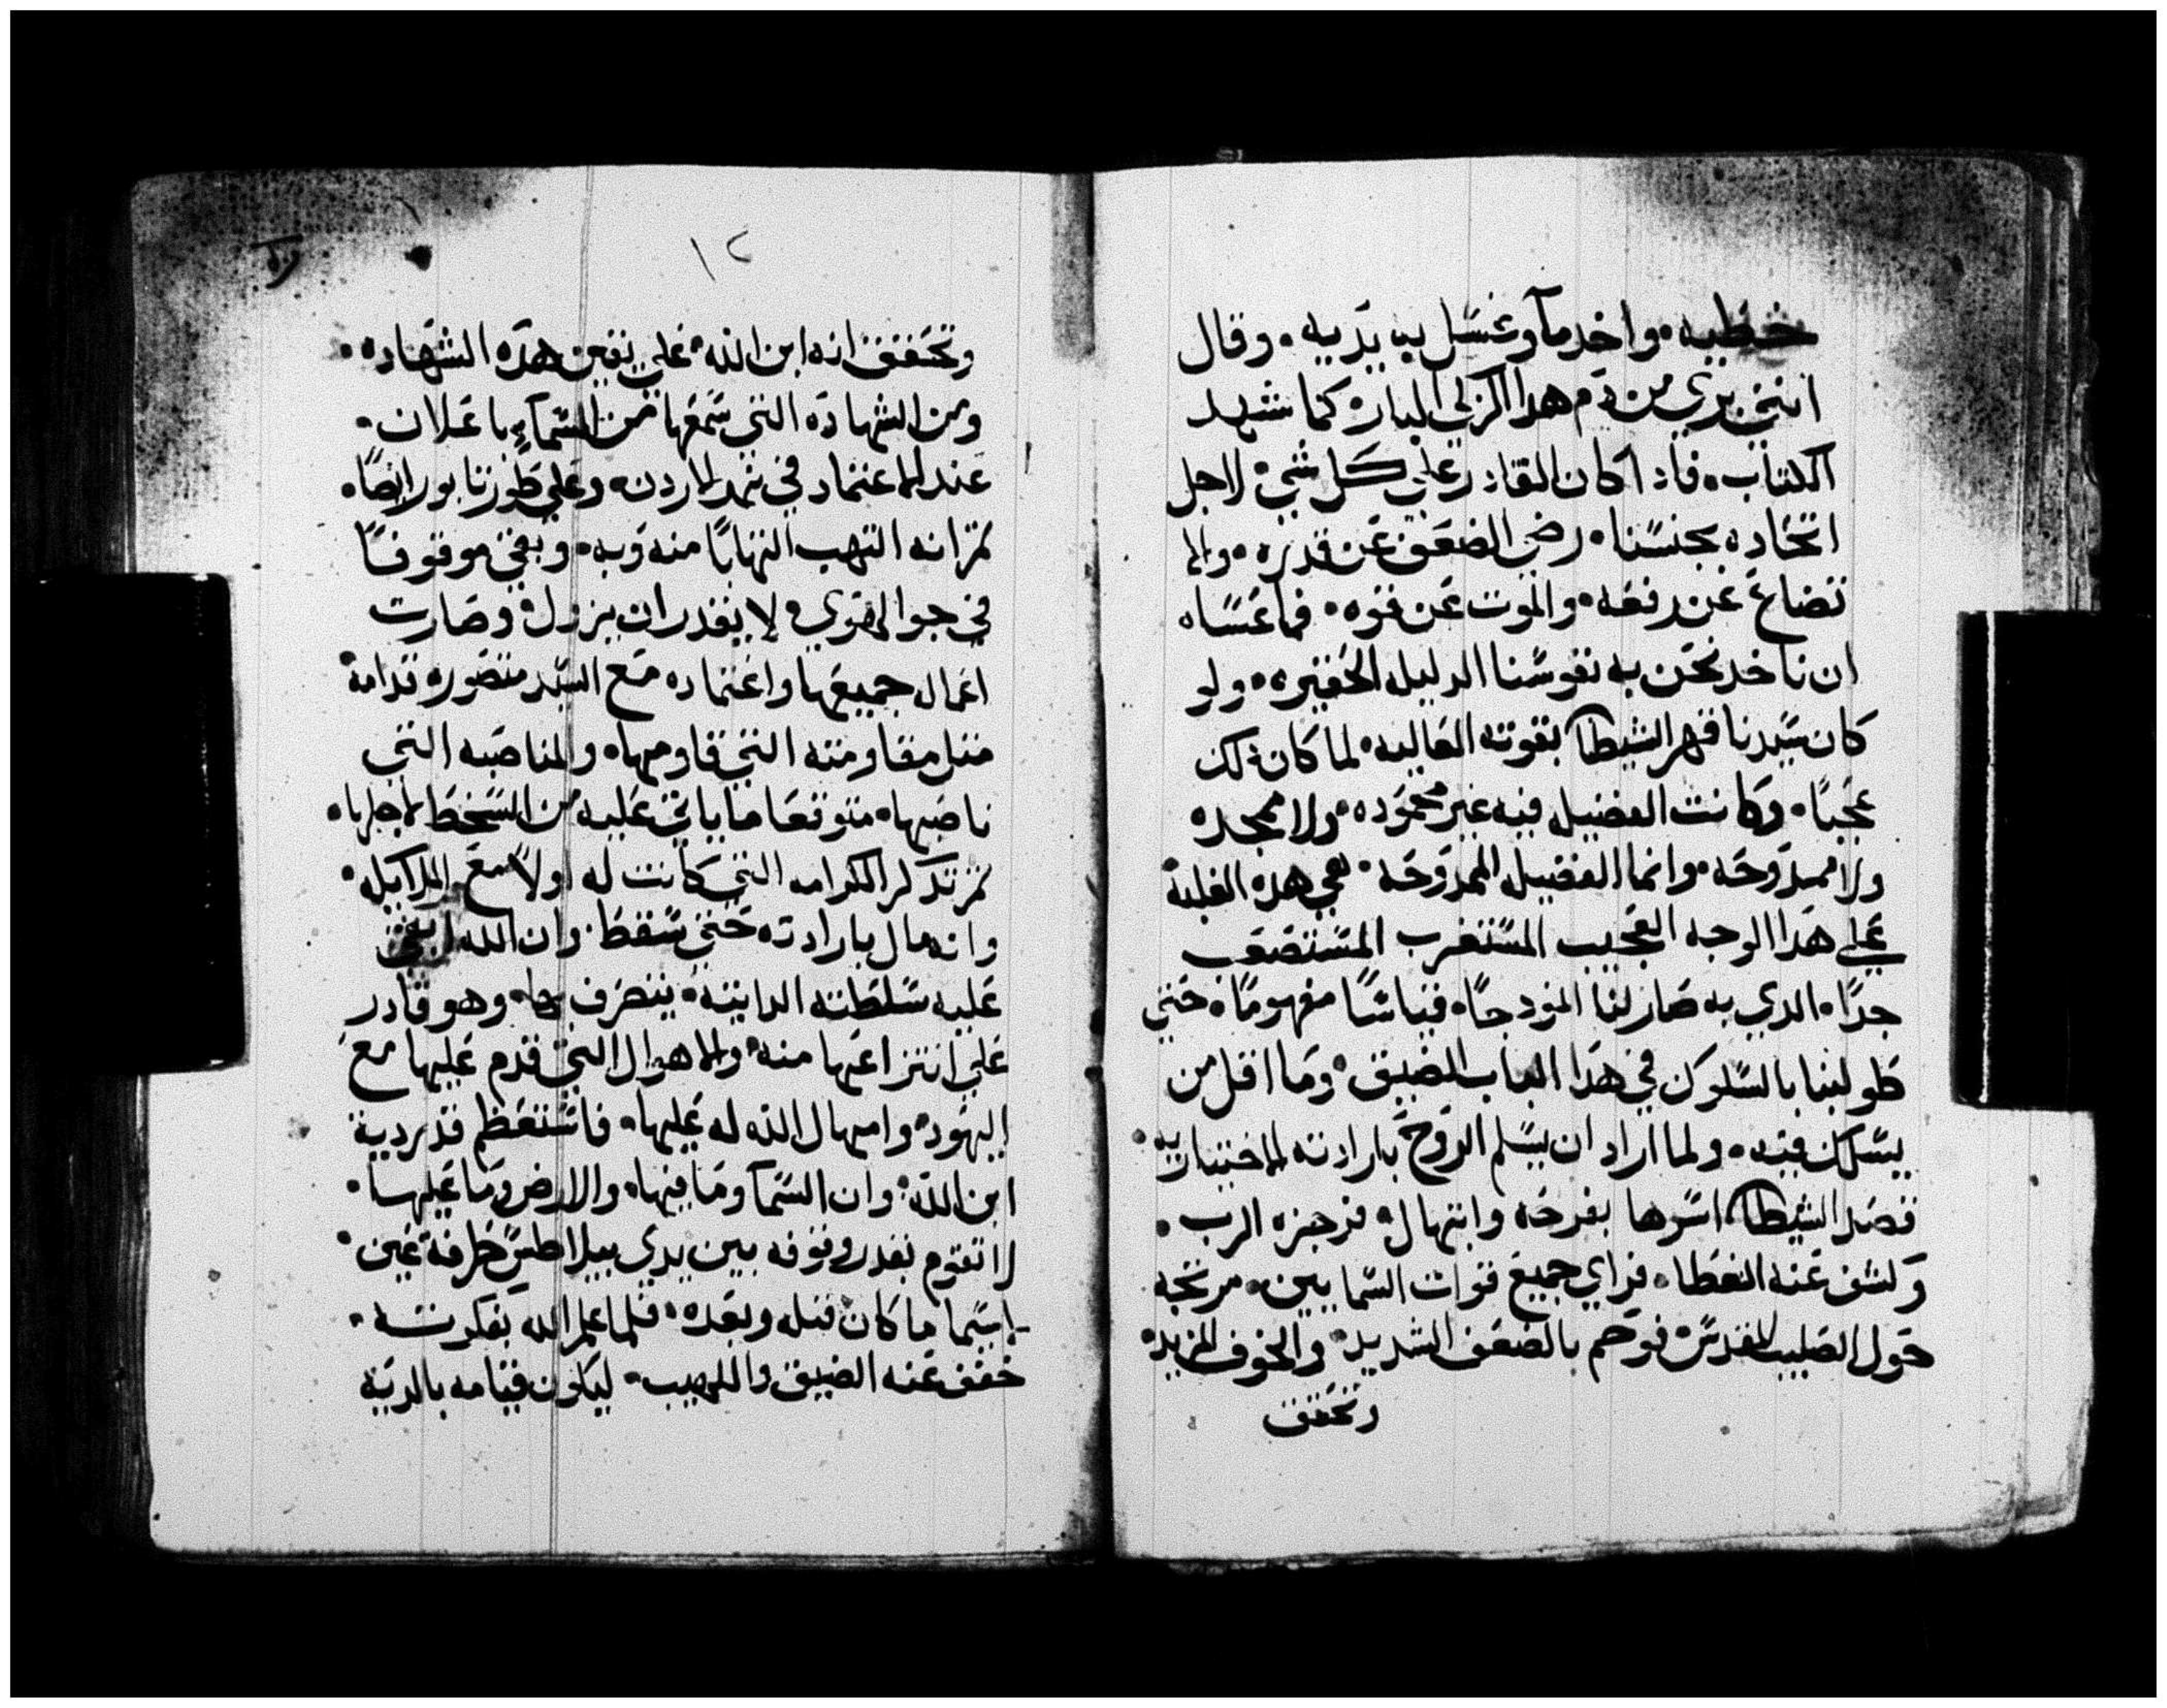 خطيه • واخد مآ وغسل به يديه • وقال
انني بري من دم هدا الزكي البار • كما شهد
الكتاب • فادا كان القادر علي كل شي • لاجل
اتحاده بجنسنا • رضي الضعف عن قدره • والا
تضاع عن رفعه • والموت عن قوه • فما عساه
ان ناخد نحن به نفوسنا الدليله الحقيره • ولو
كان سيدنا قهر الشيطا بقوته الغالبه • لما كان دلك
عجبًا • وكانت الفضيل فيه غير محموده • ولا ممجده
ولا ممدوحه • وانما الفضيله الممدوحه • هي هده الغلبة
علي هدا الوجه العجيب المستغرب المستصعب
جدًا • الدي به صار لنا انمودجًا • قياسًا مفهومًا • حتي
طولبنا بالسلوك في هدا الباب الضيق • وما اقل من
يسلك فيه • ولما اراد ان يسلم الروح بارادته الاختياريه •
قصد الشيطا اسرها بفرحه وابتهال • فزجره الرب •
وكشف عنه الغطا • فراي جميع قوات السمايين • مرتجه
حول الصليب المقدس • فوهم بالضعف الشديد • والخوف المزيد •
وتحقق
١٢
وتحقق انه ابن الله • علي يقين هده الشهاده •
ومن الشهاده التي سمعها من السمآء باعلان •
عند الاعتماد في نهر الاردن • وعلي طور تابور ايضًا •
ثم انه التهب التهابًا منه وبه • وبقي موقوفًا
في جو الهوي • لا يقدر ان يزول • وصارت
اعمال جميعها واعتماده مع السيد متصوره قدامه •
مثل مقاومته التي قاومها • والمناصبه التي
ناصبها • متوقعا ما ياتي عليه من السخط لاجلها •
ثم تدكر الكرامه التي كانت له اولاً مع الملايكه •
وانه مال بارادته حتي سقط • وان الله ابقي
عليه سلطته الداتيه • يتصرف بها • وهو قادر
علي انتزاعها منه • والاهوال التي قدم عليها مع
اليهود • وامهال الله له عليها • فاستعظم قدر دية
ابن الله • وان السمآ وما فيها • والارض وما عليها •
لا تقوم بقدر وقوفه بين يدي بيلاطس طرفة عين •
لاسيما ما كان قبله وبعده • فلما علم الله بفكرته •
خفف عنه الضيق واللهيب • ليكون قيامه بالدية